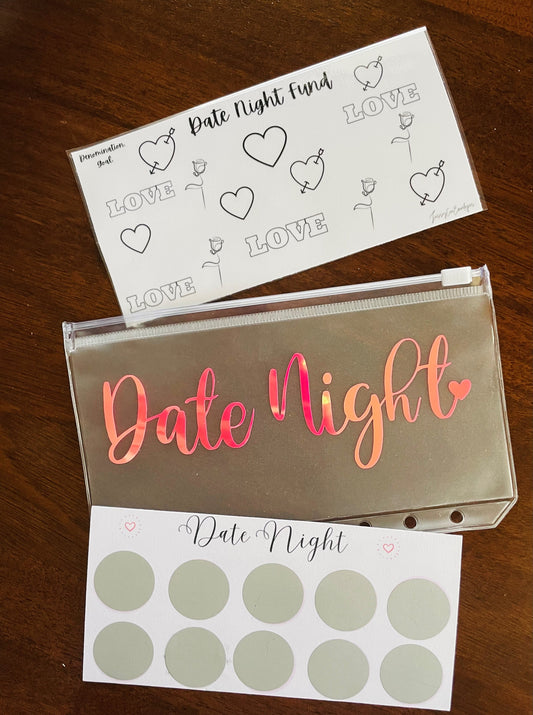 Date Night Fund
Denomination
Goal
LOVE
LOVE
LOVE
LOVE
Date Night
Date Night